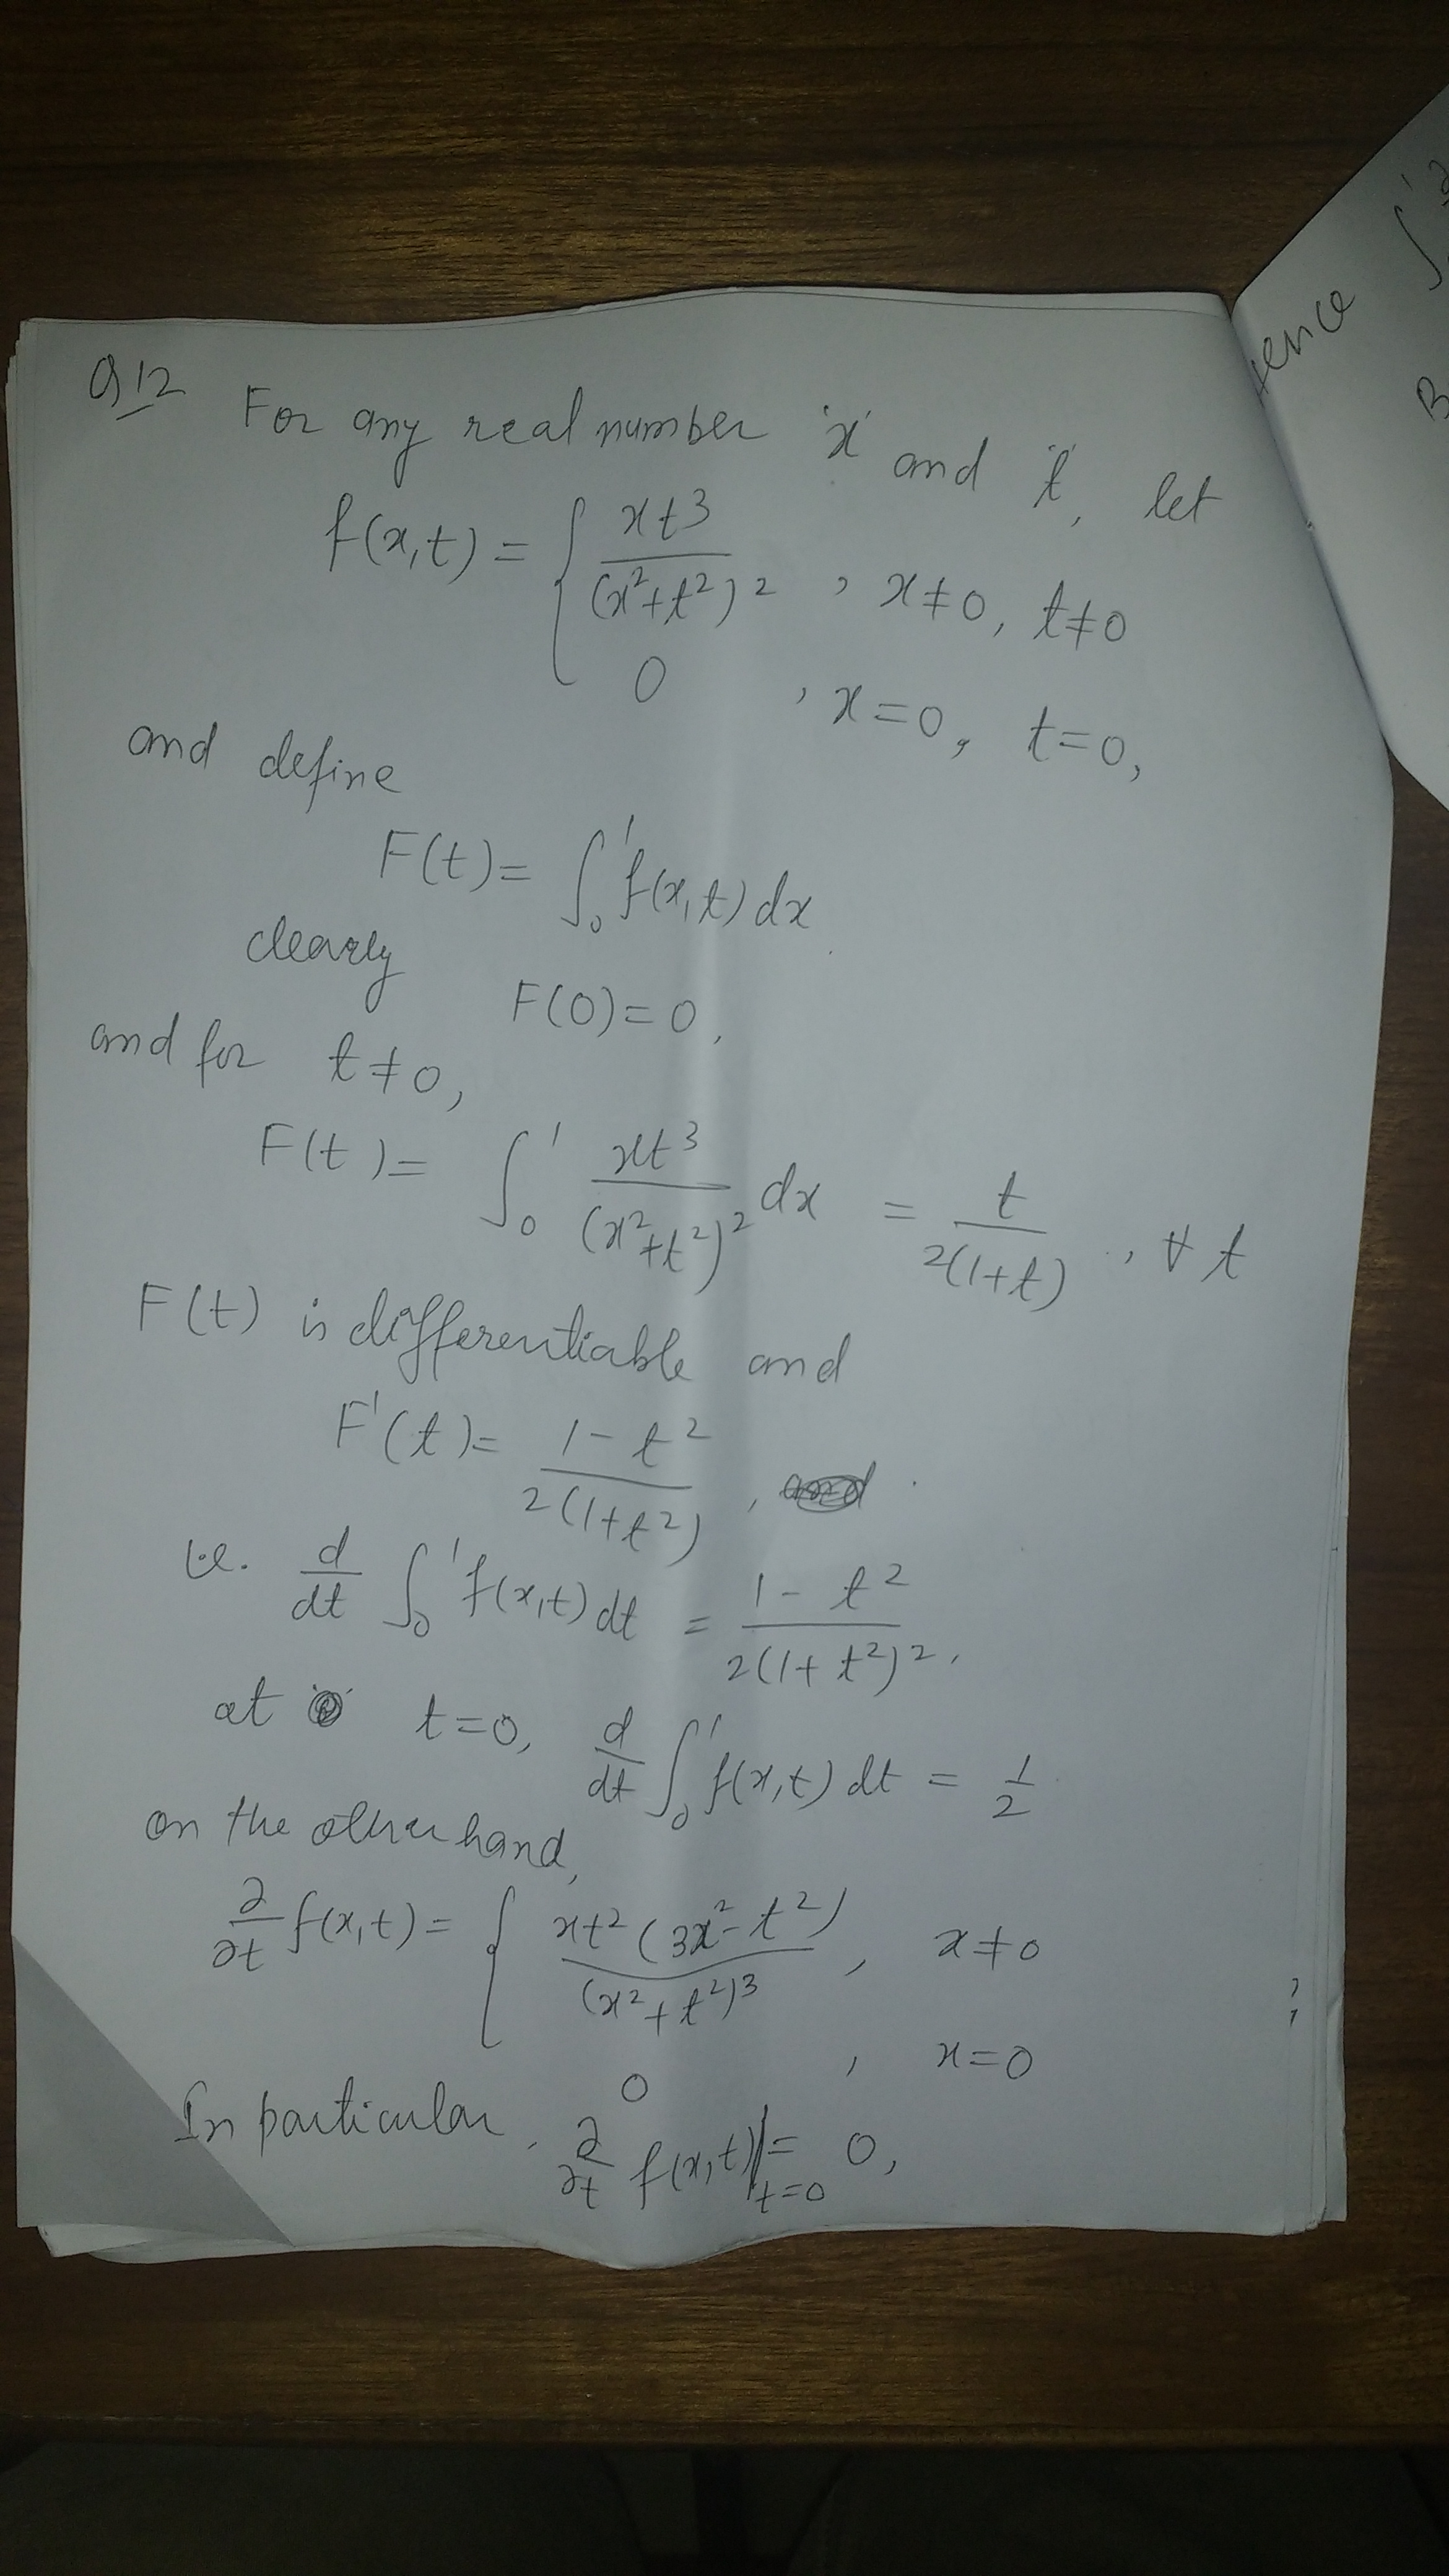 Q12 For any real number 'x' and 't', let
f(x,t) = { xt3 / (x²+t²)² , x≠0, t≠0
0 , x=0, t=0,
and define
F(t) = ∫₀¹ f(x,t) dx
clearly F(0) = 0,
and for t≠0,
F(t) = ∫₀¹ xt³ / (x²+t²)² dx = t / 2(1+t) , ∀ t
F(t) is differentiable and
F'(t) = 1-t² / 2(1+t²) ,
i.e. d/dt ∫₀¹ f(x,t) dt = 1-t² / 2(1+t²)².
at t=0, d/dt ∫₀¹ f(x,t) dt = 1/2
on the other hand,
∂/∂t f(x,t) = { xt² (3x²-t²) / (x²+t²)³ , x≠0
0 , x=0
In particular, ∂/∂t f(x,t)|t=0 = 0,
ence ∫
B